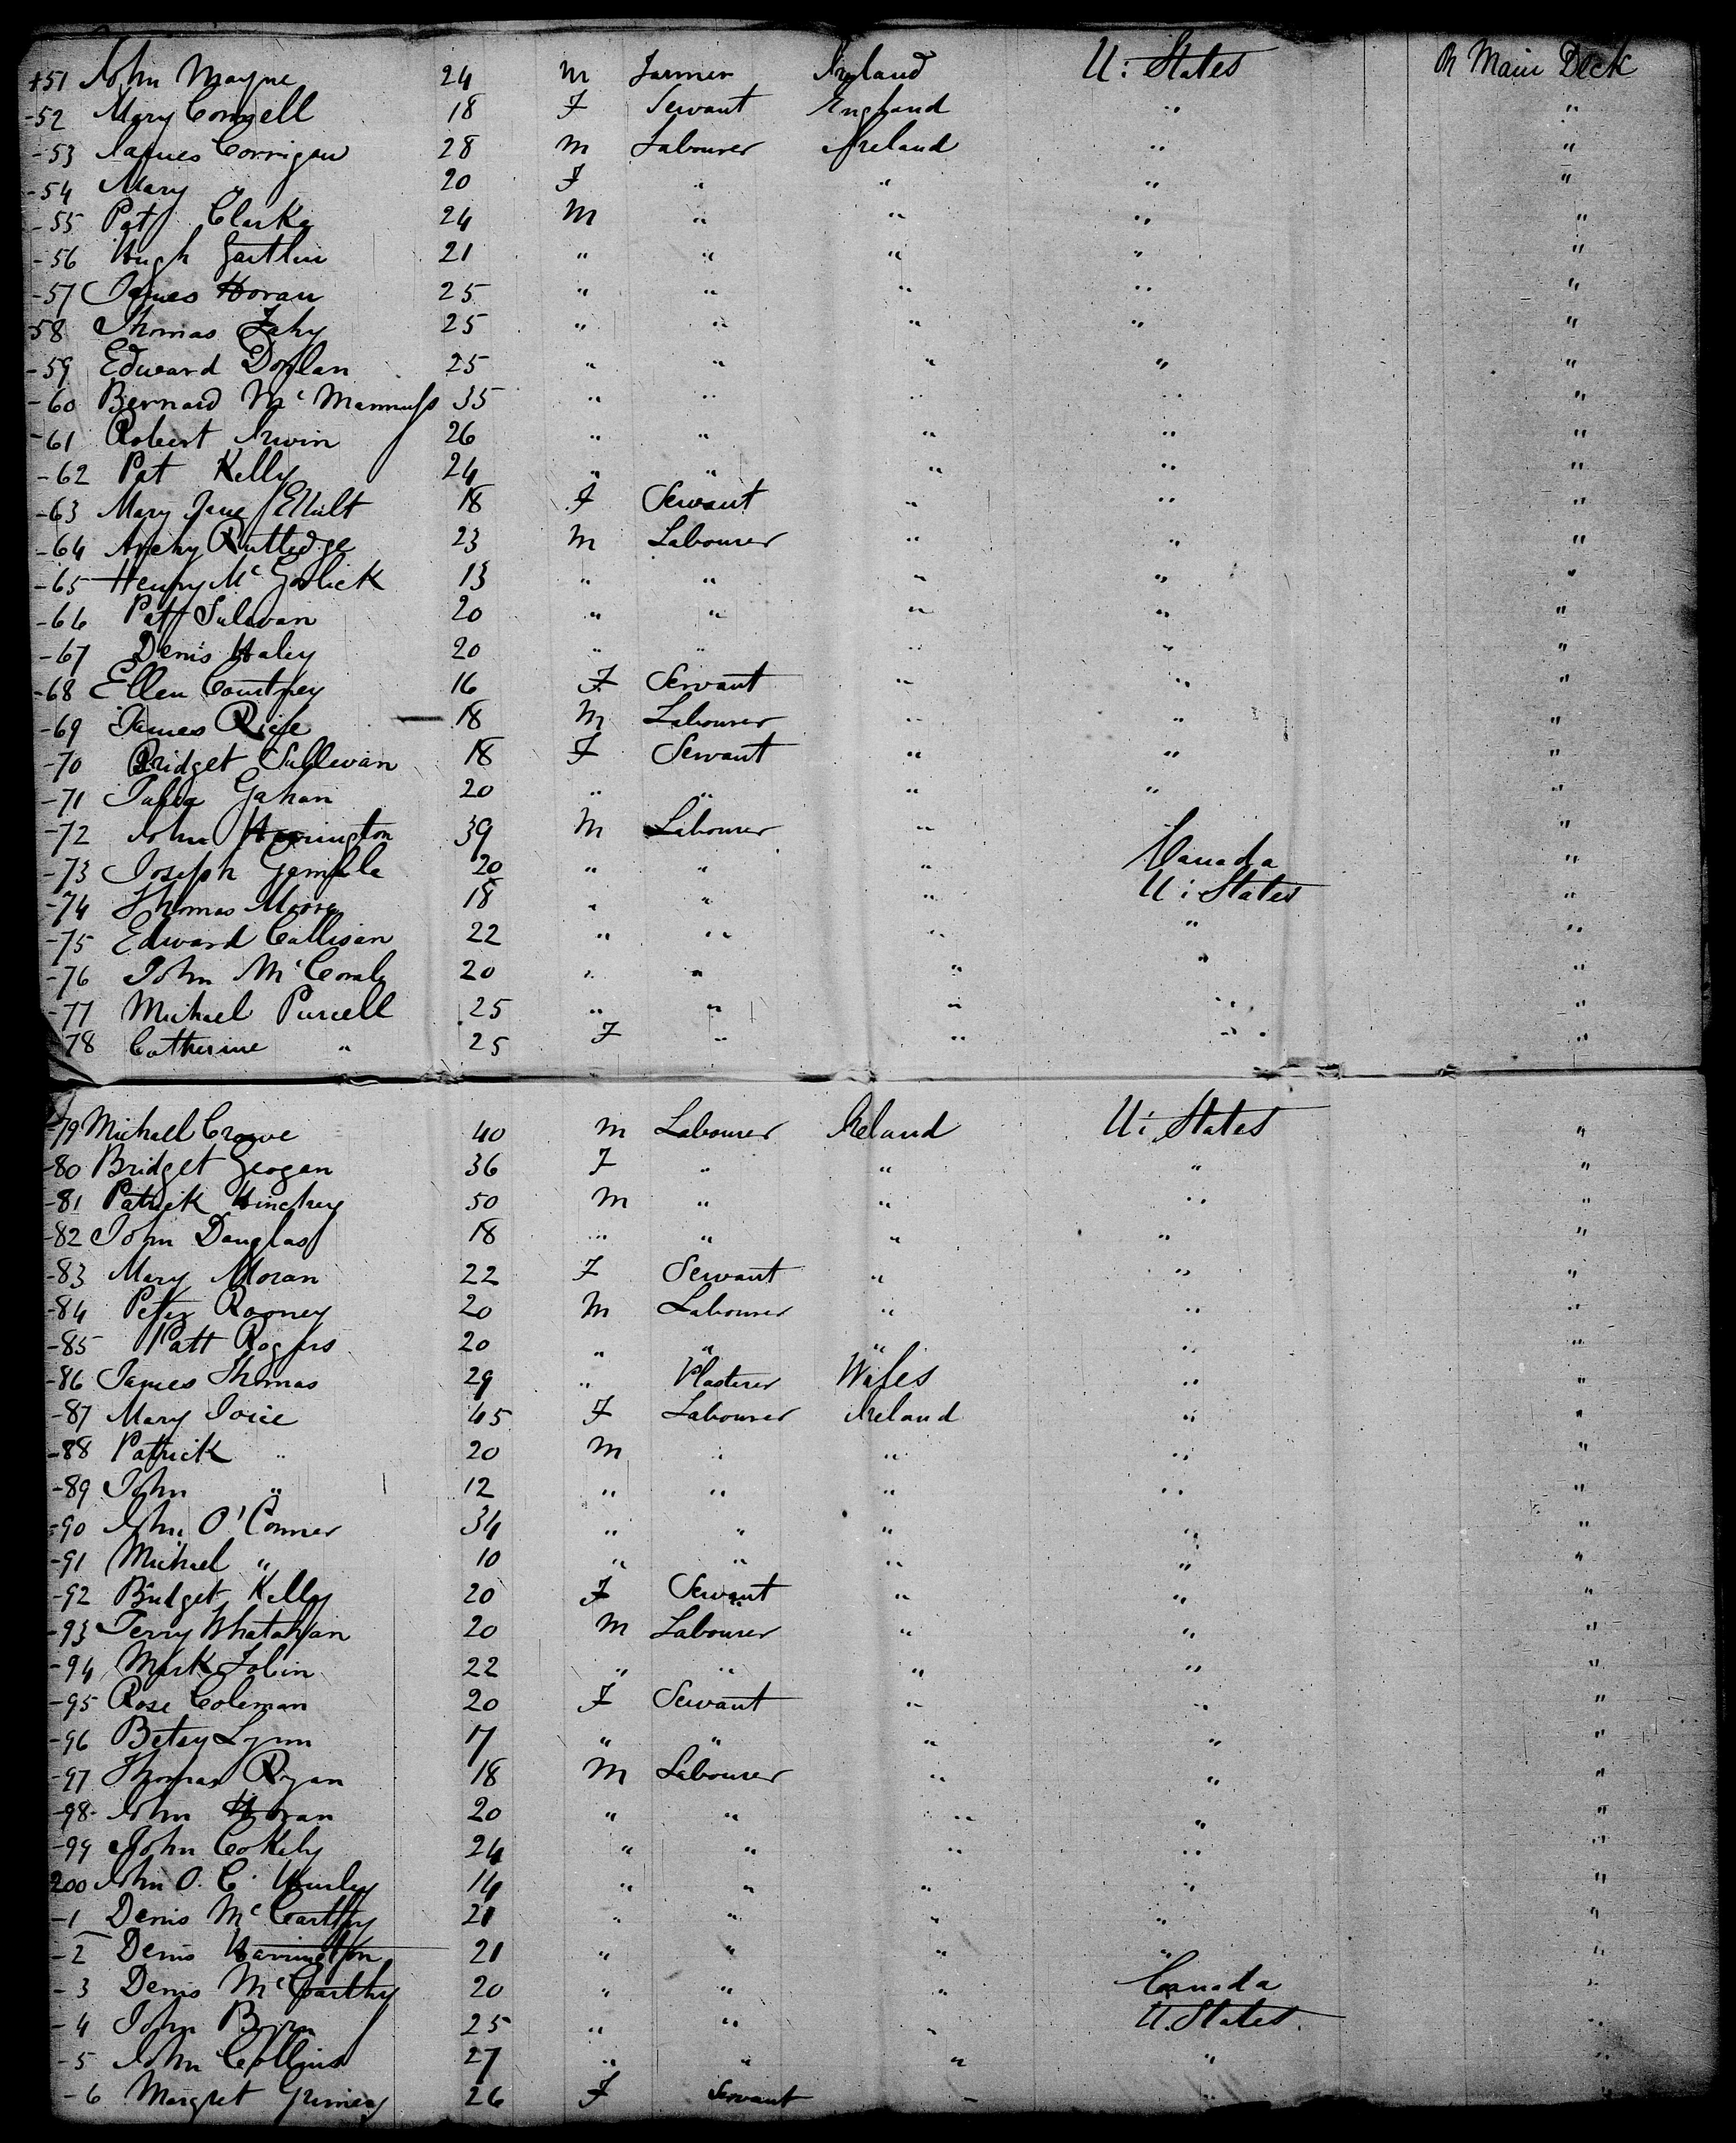 151 John Mayne 24 M Farmer Ireland U: States On Main Deck
-52 Mary Connell 18 F Servant England " "
-53 James Corrigan 28 M Labourer Ireland " "
-54 Mary " 20 F " " " "
-55 Patt Clarke 24 M " " " "
-56 Hugh Gartlin 21 " " " " "
-57 James Horan 25 " " " " "
58 Thomas Fahy 25 " " " " "
-59 Edward Donlan 25 " " " " "
-60 Bernard McMannuss 35 " " " " "
-61 Robert Irwin 26 " " " " "
-62 Pat Kelly 24 " " " " "
-63 Mary Jane Elliilt 18 F Servant " " "
-64 Archy Ruttedge 23 M Labourer " " "
-65 Henry Mc Golick 13 " " " " "
-66 Patt Sulavan 20 " " " " "
-67 Denis Haley 20 " " " " "
-68 Ellen Courtney 16 F Servant " " "
-69 James Rice 18 M Labourer " " "
-70 Bridget Sullevan 18 F Servant " " "
-71 Gahan 20 " " " " "
-72 John Harrington 39 M Labourer " "
-73 Joseph Gamble 20 " " " Canada "
-74 Thomas Moore 18 " " " U: States "
-75 Edward Callisan 22 " " " " "
-76 John McComb 20 " " " " "
-77 Michael Purcell 25 " " " " "
78 Catherine " 25 F " " " "
79 Michael Crowe 40 M Labourer Ireland U: States "
-80 Bridget Geogan 36 F " " " "
-81 Patrick Hinchey 50 M " " " "
-82 John Douglas 18 " " " " "
-83 Mary Moran 22 F Servant " " "
-84 Peter Rooney 20 M Labourer " " "
-85 Patt Rogers 20 " " " " "
-86 James Thomas 29 " Plasterer Wales " "
-87 Mary Joice 45 F Labourer Ireland " "
-88 Patrick " 20 M " " " "
-89 John " 12 " " " " "
-90 John O'Conner 34 " " " " "
-91 Michael " 10 " " " " "
-92 Bridget Kelly 20 F Servant " " "
-93 Terry 20 M Labourer " " "
-94 Mark Tobin 22 " " " " "
-95 Rose Coleman 20 F Servant " " "
-96 Betsy Lynn 17 " " " " "
-97 Thomas Ryan 18 M Labourer " " "
-98 John Horan 20 " " " " "
-99 John Cokely 24 " " " " "
200 John O. C. Hurley 14 " " " " "
-1 Denis McCarthy 21 " " " " "
-2 Denis Harrington 21 " " " " "
-3 Denis McCarthy 20 " " " Canada "
-4 John Byrn 25 " " " U. States "
-5 John Collins 27 " " " " "
-6 Margret 26 F Servant " " "